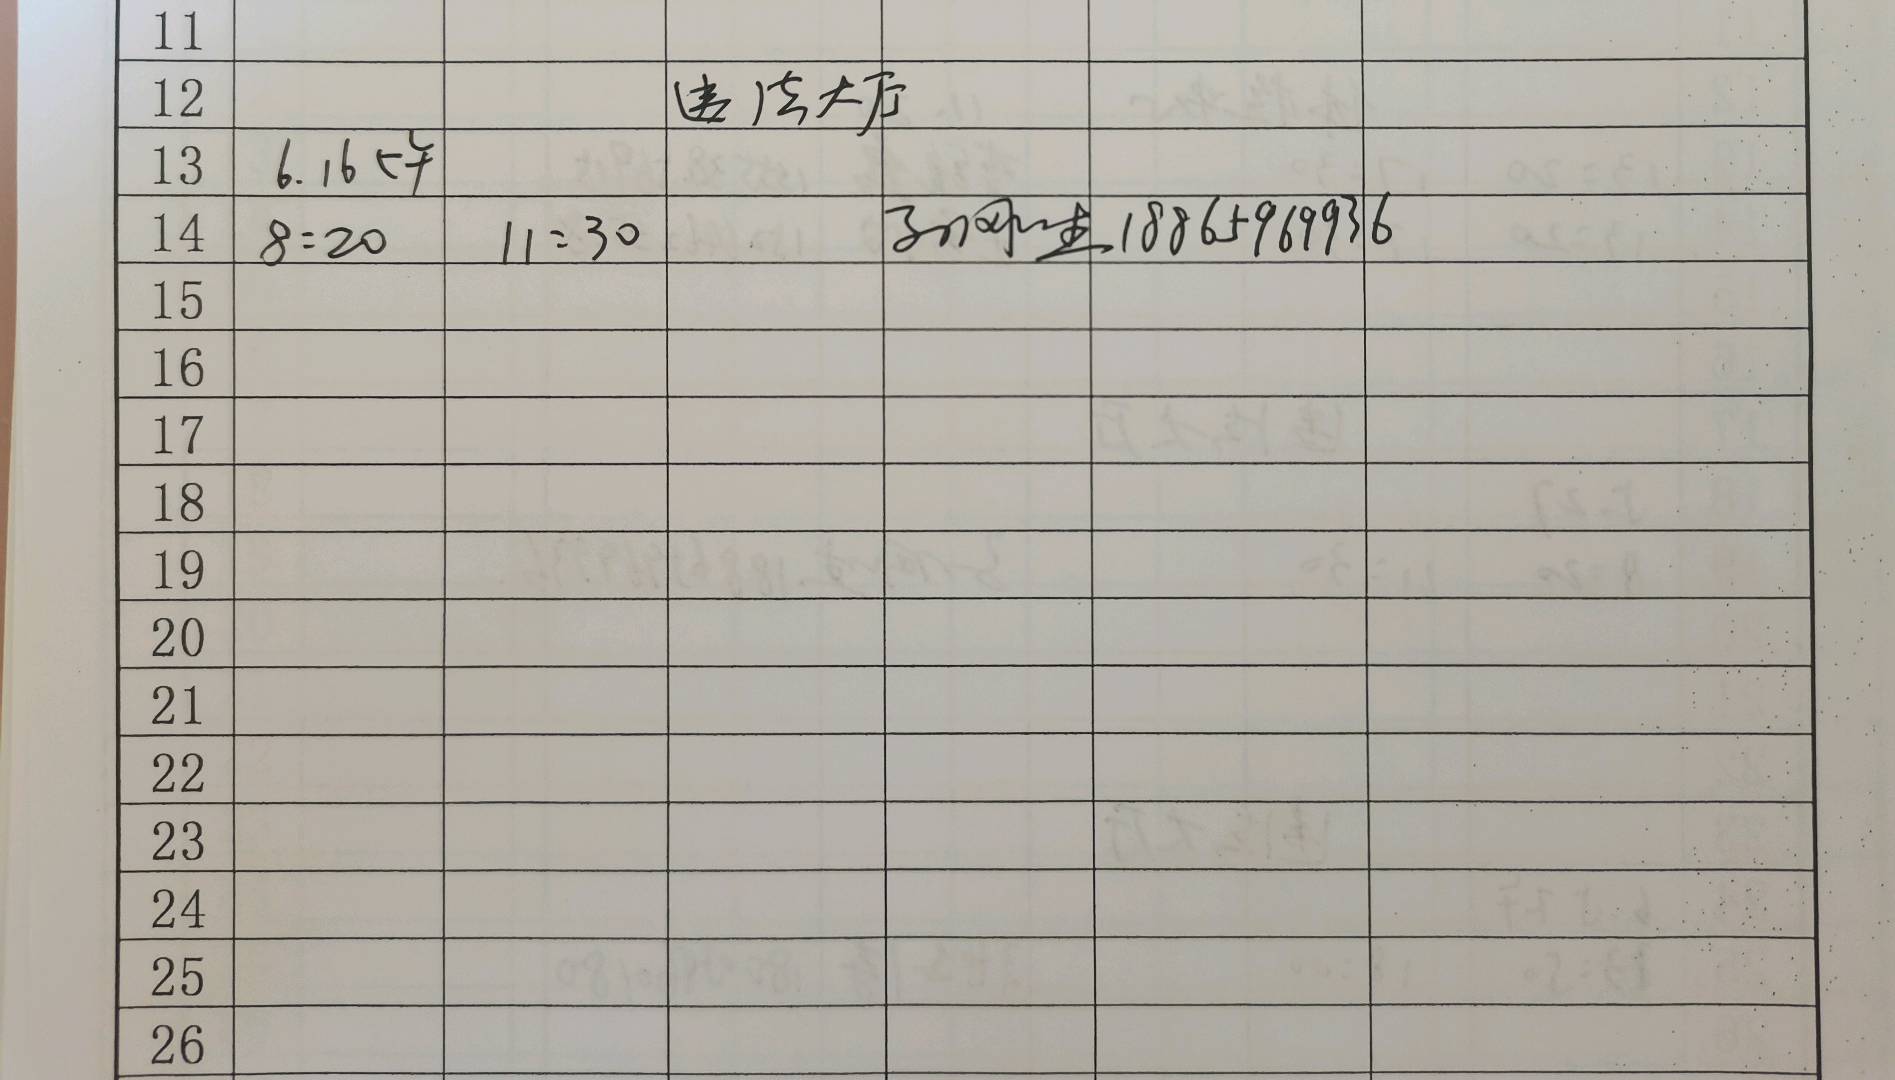 11
12 违法大厅
13 6.16 上午
14 8:20 11:30 18865969936
15
16
17
18
19
20
21
22
23
24
25
26